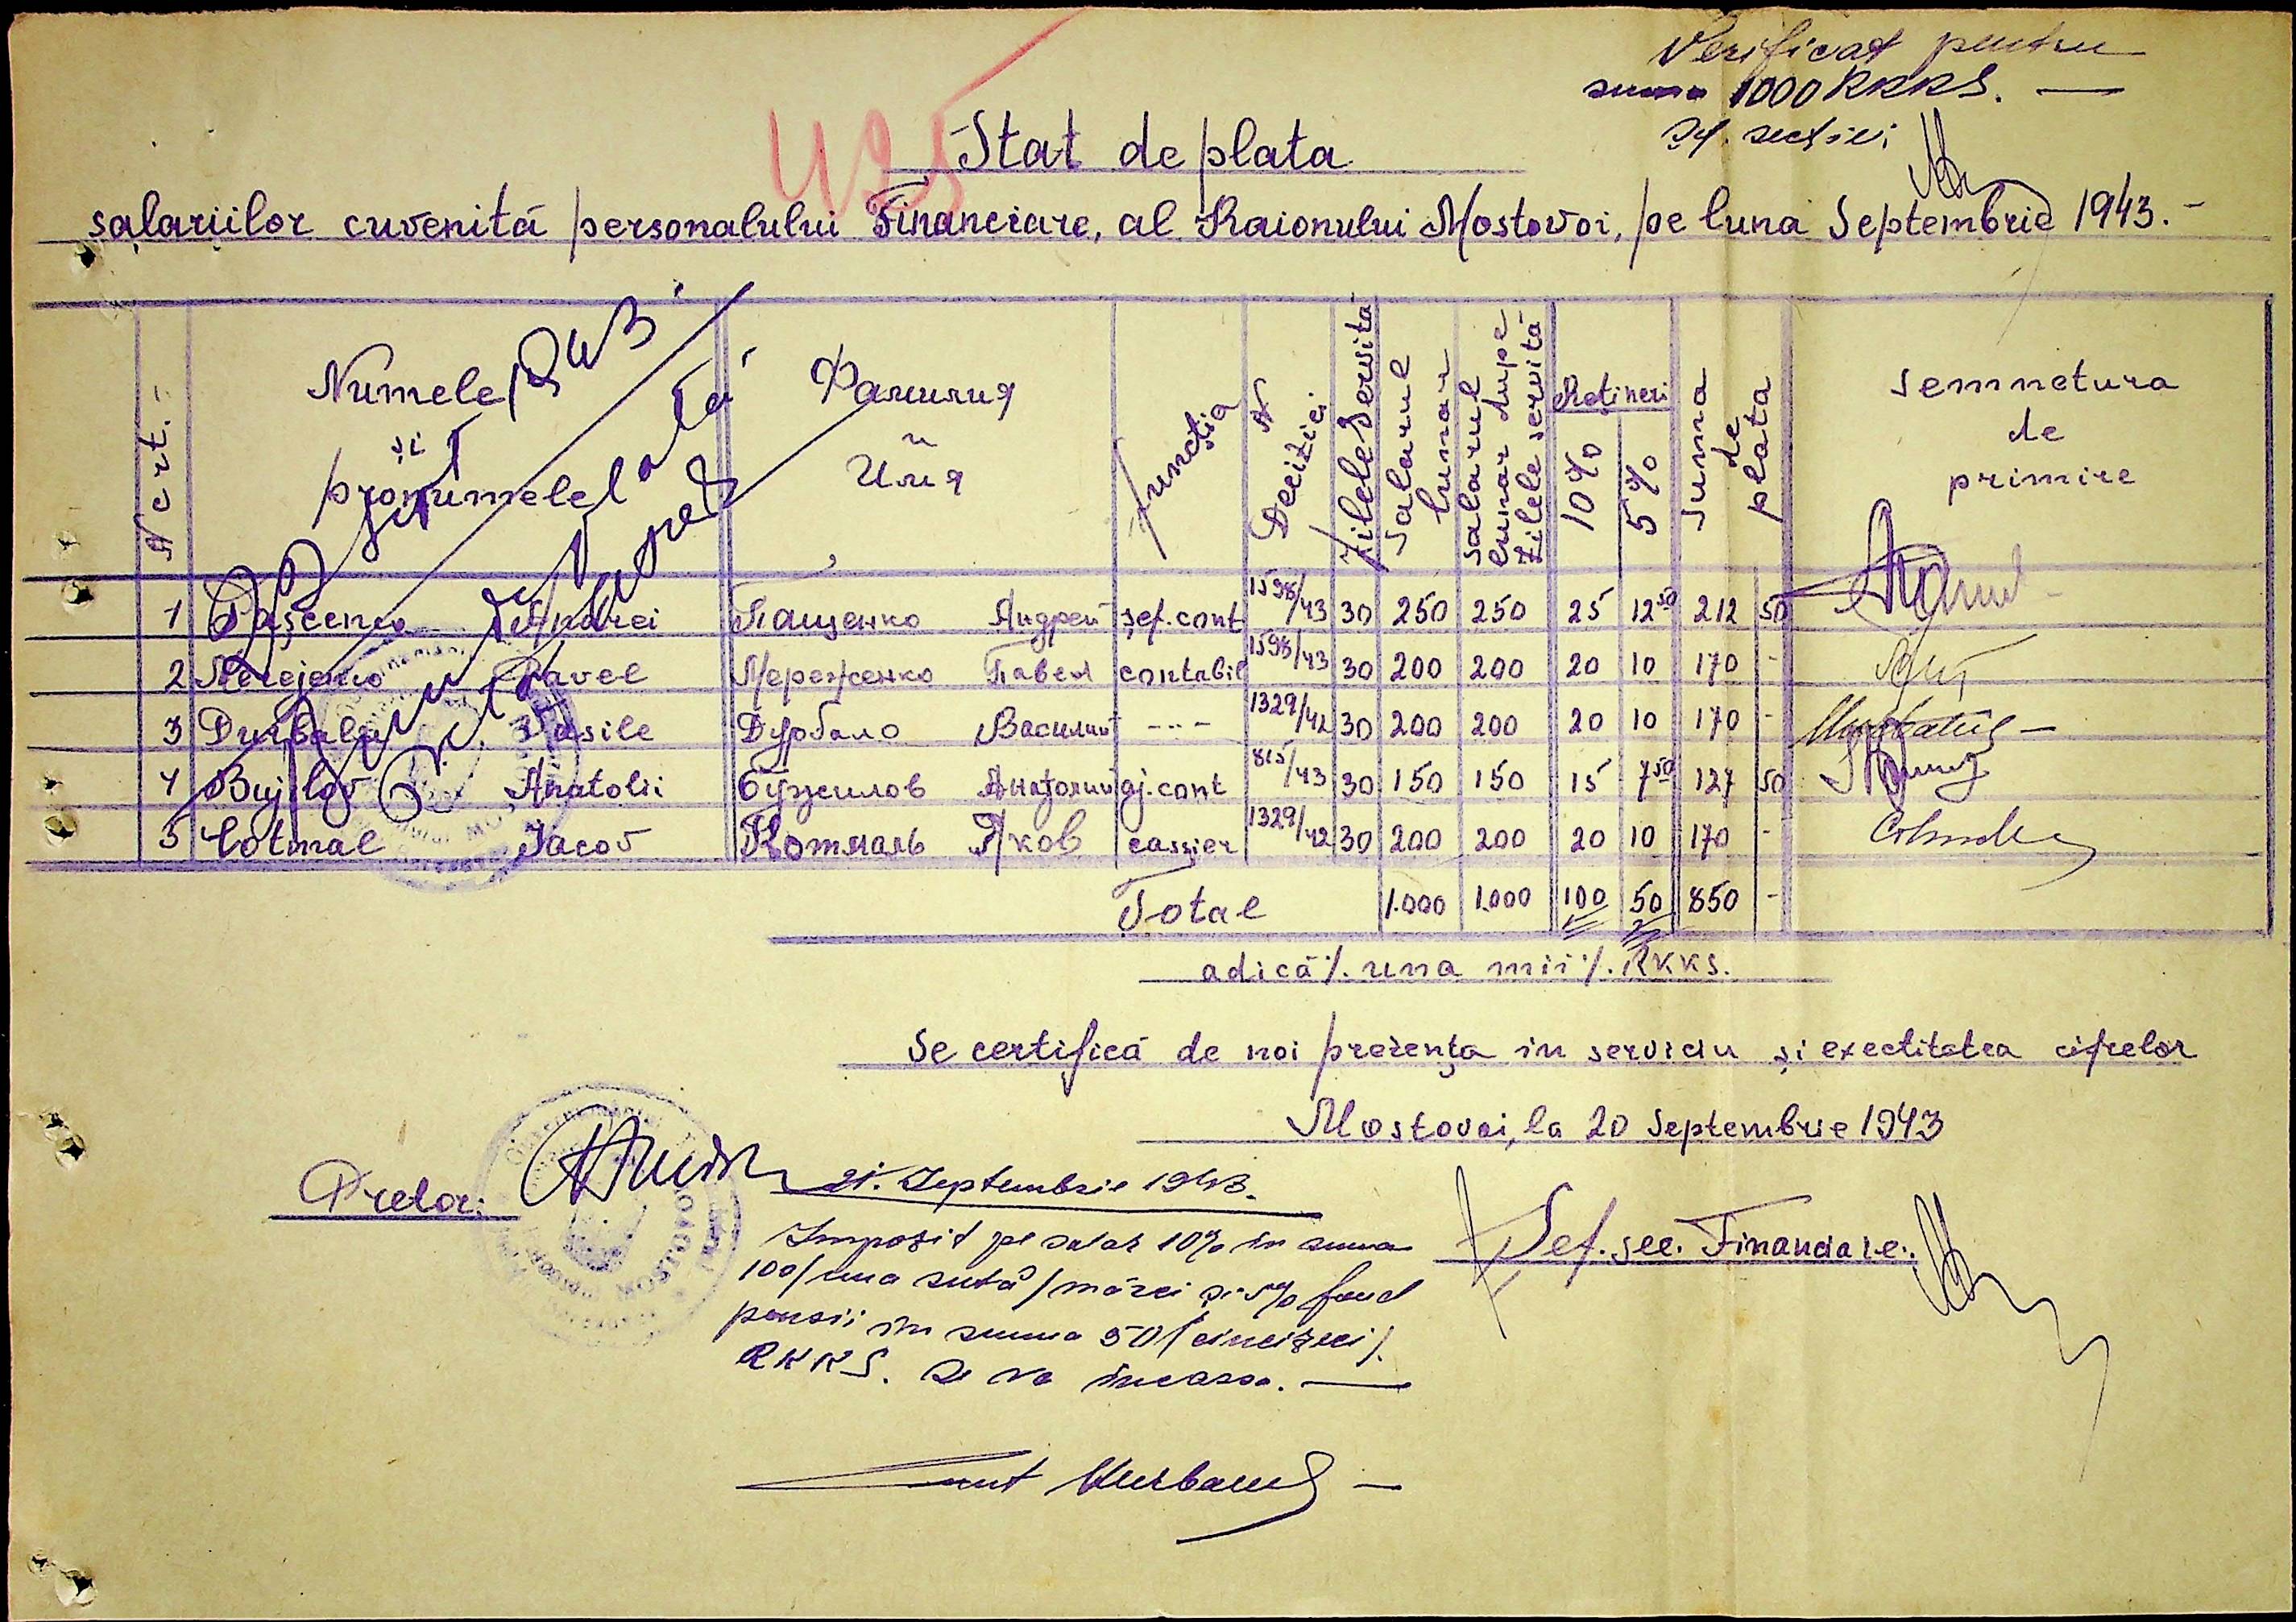 Verificat pentru
suma 1000 RKKS. —
Șef. secției
495
Stat de plata
salariilor cuvenită personalului Financiare, al Raionului Mostovoi, pe luna Septembrie 1943.-
N crt.-
Numele
și
pronumele
Фамилия
и
Имя
functia
N Deciziei
Zilele servită
Salarul lunar
Salarul lunar dupe zilele servită
Rețineri
10%
5%
Summa de plata
Semnetura
de
primire
1 Pașcenco Andrei Пащенко Андрей șef.cont 1598/43 30 250 250 25 12 50 212 50
2 Merejenco Pavel Мереженко Павел contabil 1598/43 30 200 200 20 10 170 -
3 Durbala Vasile Дурбало Василий -..- 1329/42 30 200 200 20 10 170 -
4 Bujilov Anatolii Бужилов Анатолий aj.cont 815/43 30 150 150 15 7 50 127 50
5 Cotmal Iacov Котмаль Яков cassier 1329/42 30 200 200 20 10 170 -
Total 1.000 1.000 100 50 850 -
adică ./. una mii ./. RKKS.
Se certifică de noi prezența in serviciu și exectitatea cifrelor
Mostovoi, la 20 Septembrie 1943
Pretor:
21. Septembrie 1943.
Impozit pe salar 10% în suma
100/una sută/mărci și 5% fond
pensii în summa 50/cincizeci/.
RKKS. se va încassa. —
Șef. sec. Financiare: